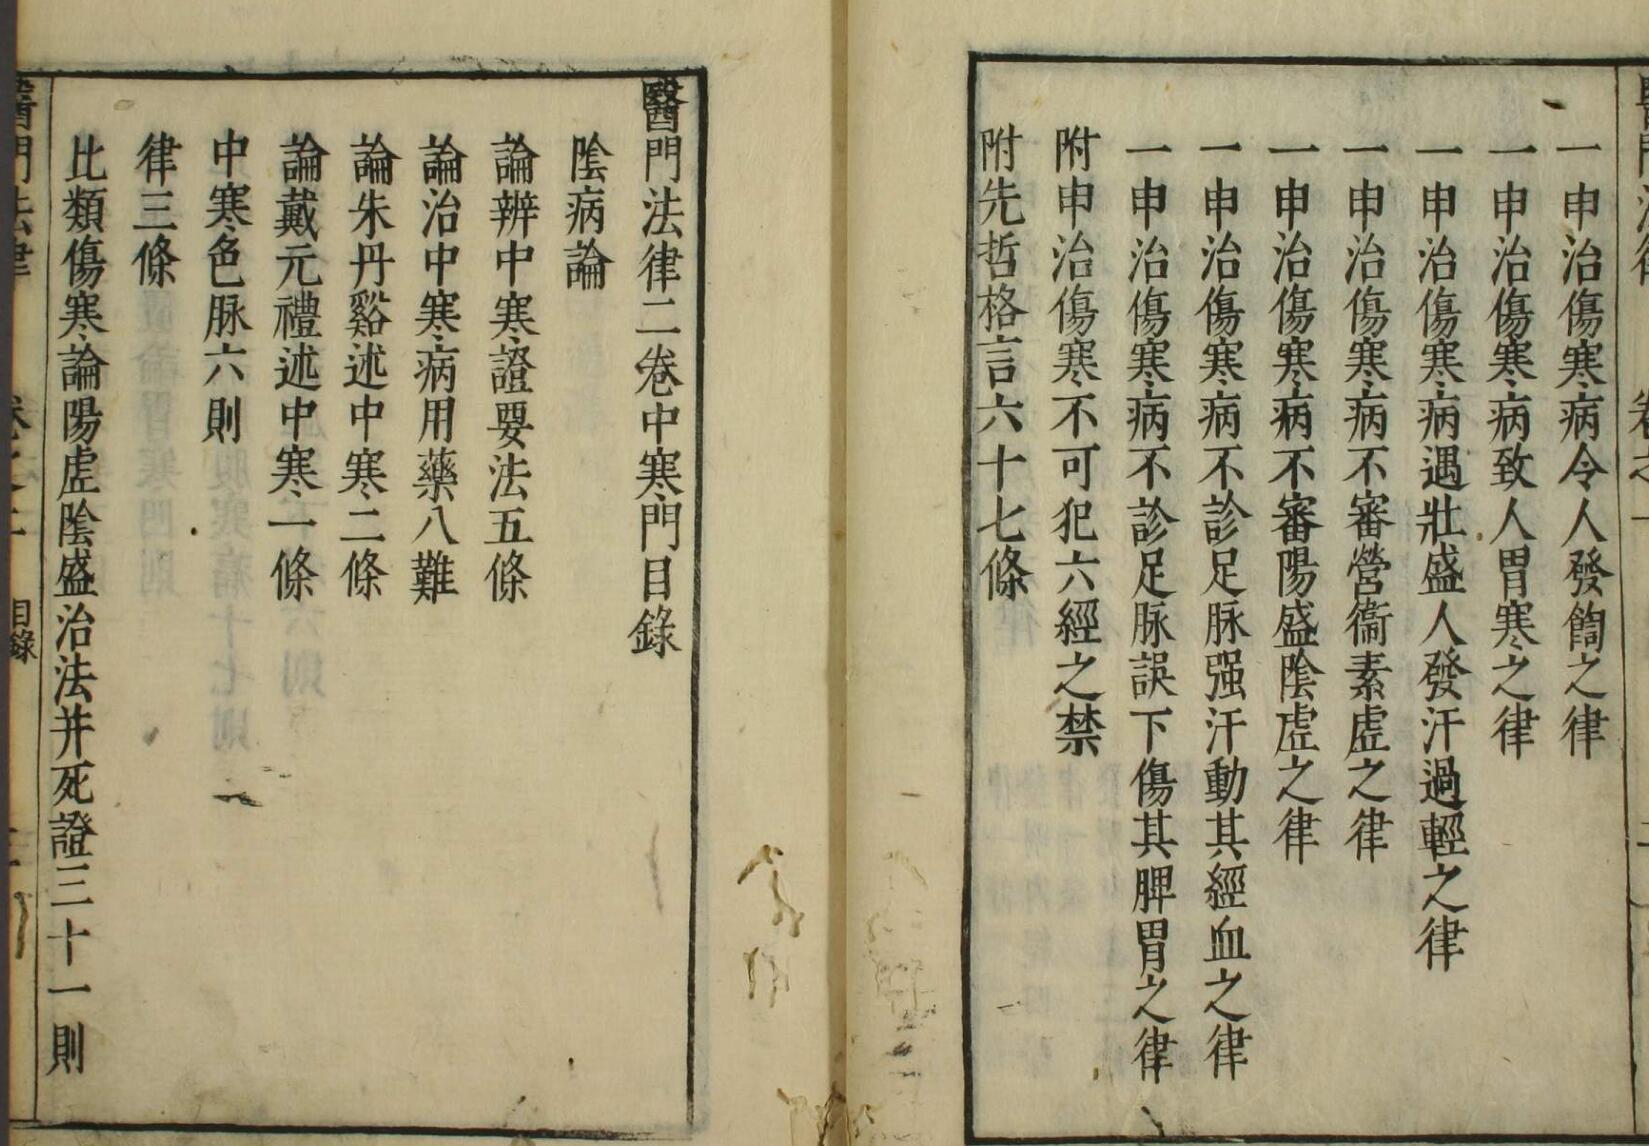 醫門法律 卷之一
一申治傷寒病令人發䭇之律
一申治傷寒病致人胃寒之律
一申治傷寒病遇壯盛人發汗過輕之律
一申治傷寒病不審營衞素虛之律
一申治傷寒病不審陽盛陰虛之律
一申治傷寒病不診足脉强汗動其經血之律
一申治傷寒病不診足脉誤下傷其脾胃之律
附申治傷寒不可犯六經之禁
附先哲格言六十七條
醫門法律二卷中寒門目錄
陰病論
論辨中寒證要法五條
論治中寒病用藥八難
論朱丹谿述中寒二條
論戴元禮述中寒一條
中寒色脉六則
律三條
比類傷寒論陽虛陰盛治法并死證三十一則
醫門法律 卷之二 目錄